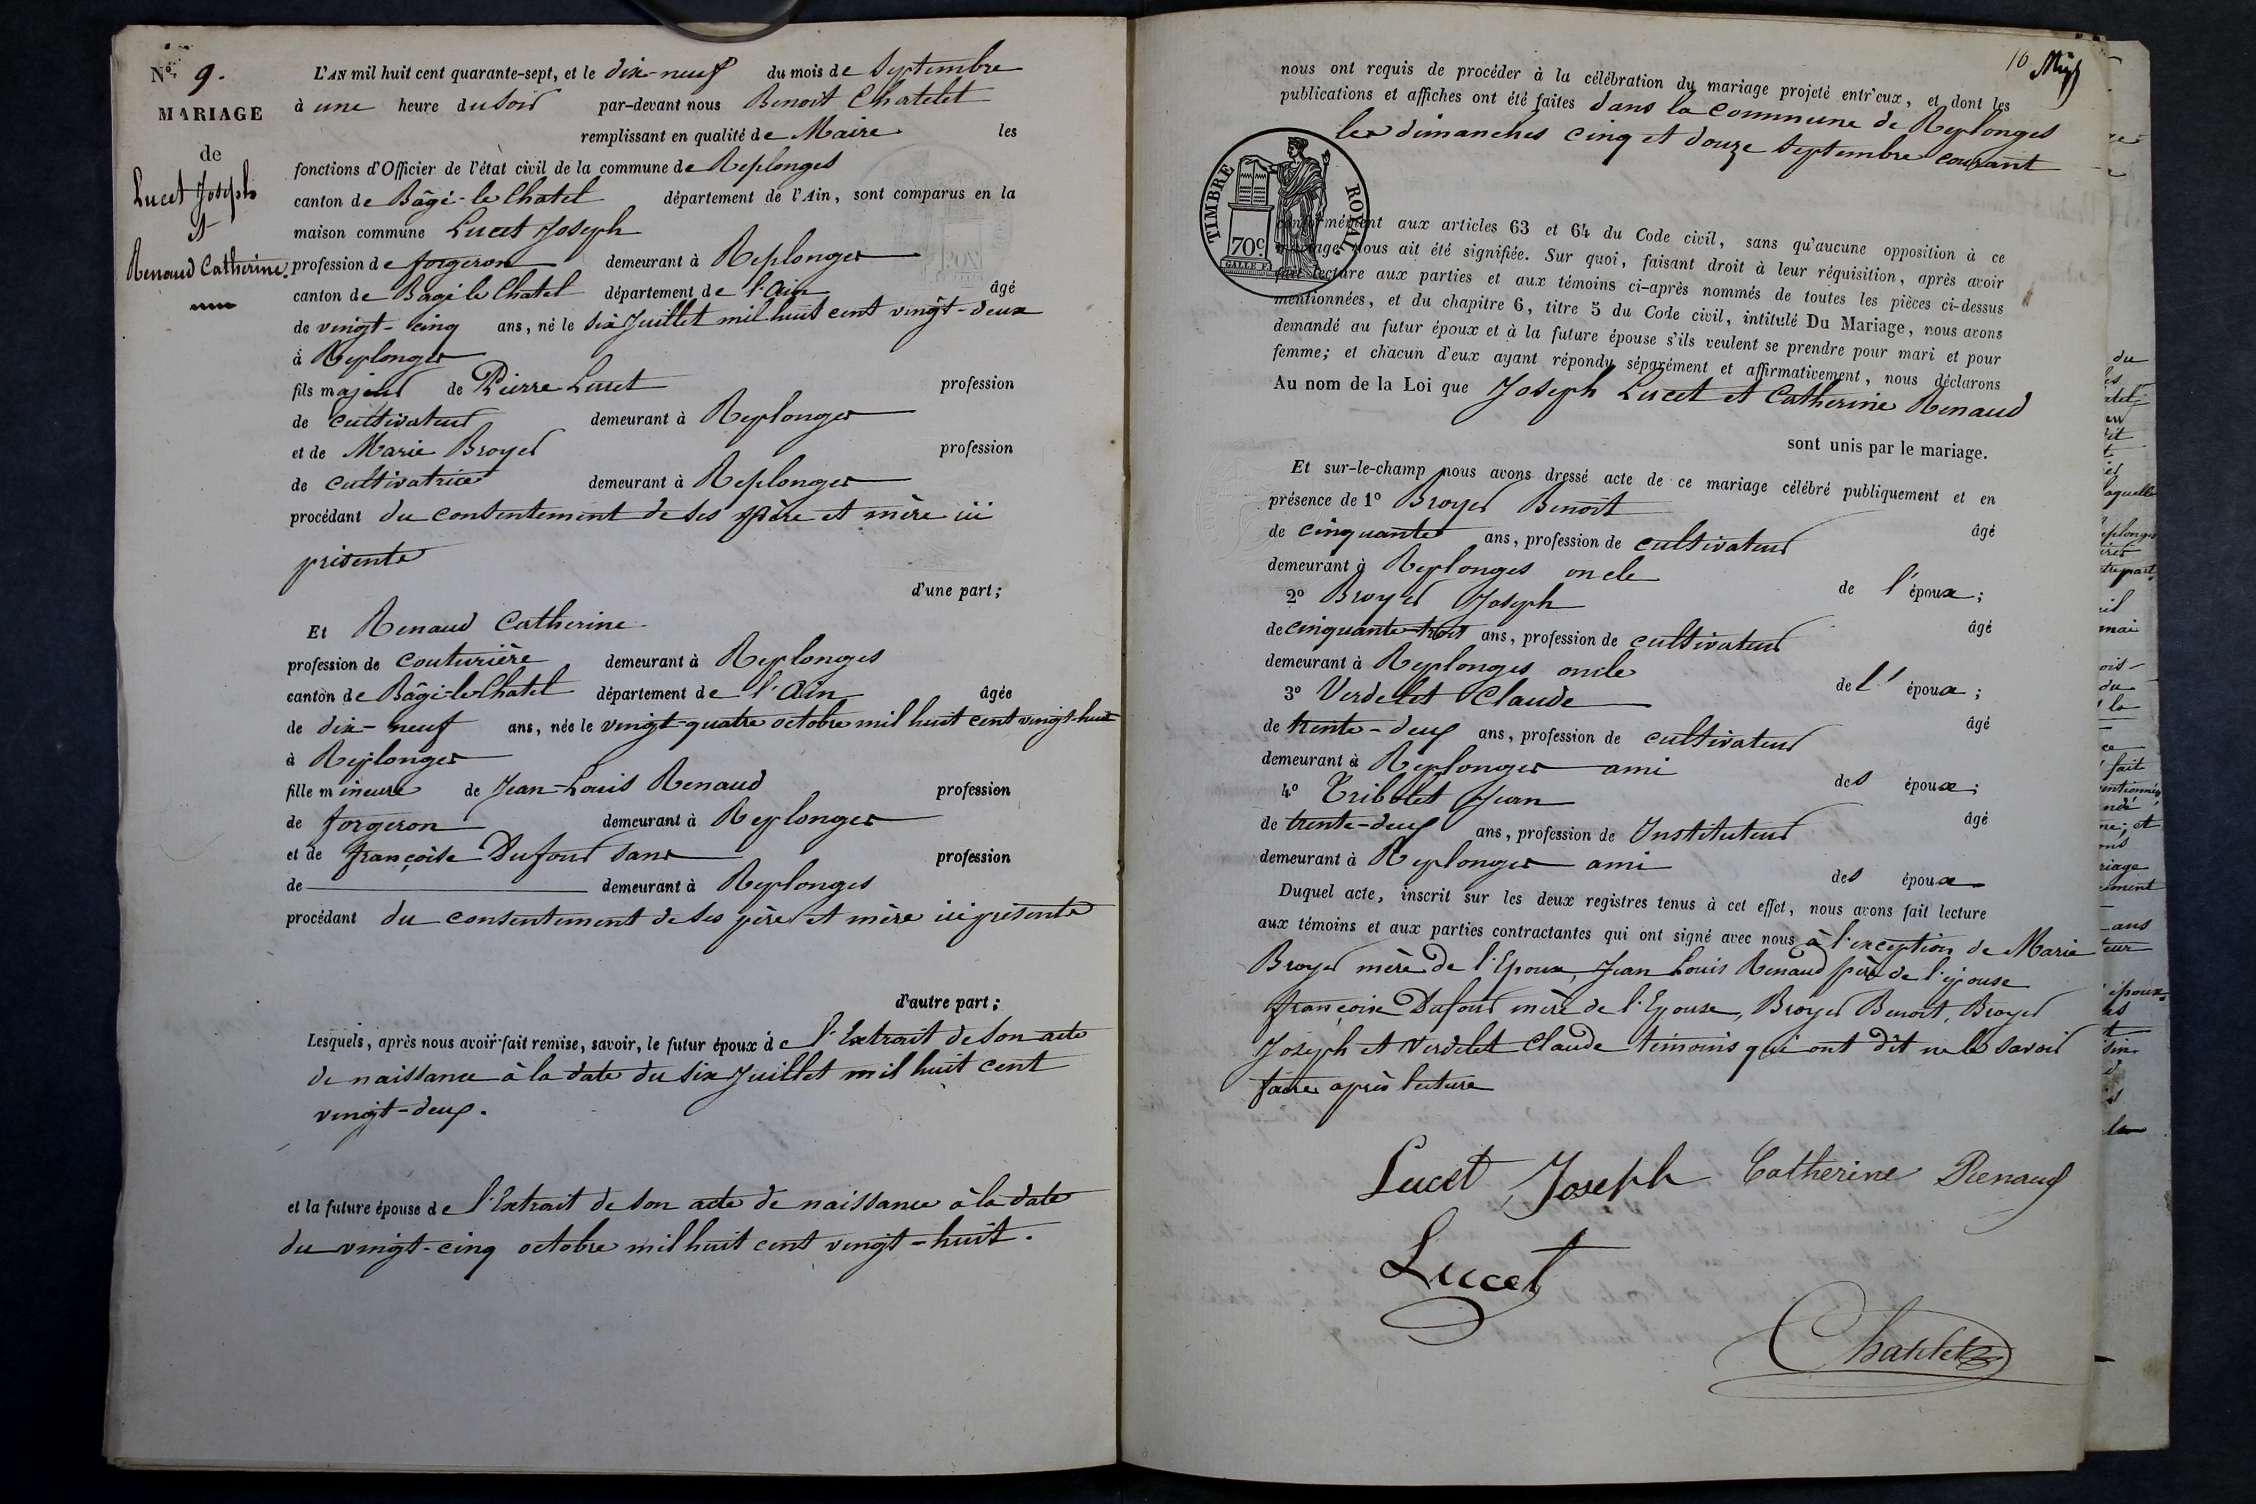 N° 9.
MARIAGE
de
Lucet Joseph
et
Renaud Catherine.
L'AN mil huit cent quarante-sept, et le dix-neuf du mois de Septembre
à une heure du Soir par-devant nous Benoit Chatelet
remplissant en qualité de Maire les
fonctions d'Officier de l'état civil de la commune de Replonges
canton de Bâgé-le Chatel département de l'Ain, sont comparus en la
maison commune Lucet Joseph
profession de forgeron demeurant à Replonges
canton de Bâgé le Chatel département de l'Ain âgé
de vingt-cinq ans, né le six Juillet mil huit cent vingt-deux
à Replonges
fils majeur de Pierre Lucet profession
de cultivateur demeurant à Replonges
et de Marie Broyer profession
de cultivatrice demeurant à Replonges
procédant du consentement de ses père et mère ici
présents
d'une part;
Et Renaud Catherine
profession de couturière demeurant à Replonges
canton de Bâgé-le Chatel département de l'Ain âgée
de dix-neuf ans, née le vingt-quatre octobre mil huit cent vingt-huit
à Replonges
fille mineure de Jean-Louis Renaud profession
de forgeron demeurant à Replonges
et de françoise Dufour sans profession
de demeurant à Replonges
procédant du consentement de ses père et mère ici présents
d'autre part;
Lesquels, après nous avoir fait remise, savoir, le futur époux de l'Extrait de son acte
de naissance à la date du six Juillet mil huit cent
vingt-deux.
et la future épouse de l'Extrait de son acte de naissance à la date
du vingt-cinq octobre mil huit cent vingt-huit.
16
nous ont requis de procéder à la célébration du mariage projeté entr'eux, et dont les
publications et affiches ont été faites dans la commune de Replonges
les dimanches cinq et douze septembre courant
TIMBRE ROYAL
70c
conformément aux articles 63 et 64 du Code civil, sans qu'aucune opposition à ce
mariage nous ait été signifiée. Sur quoi, faisant droit à leur réquisition, après avoir
fait lecture aux parties et aux témoins ci-après nommés de toutes les pièces ci-dessus
mentionnées, et du chapitre 6, titre 5 du Code civil, intitulé Du Mariage, nous avons
demandé au futur époux et à la future épouse s'ils veulent se prendre pour mari et pour
femme; et chacun d'eux ayant répondu séparément et affirmativement, nous déclarons
Au nom de la Loi que Joseph Lucet et Catherine Renaud
sont unis par le mariage.
Et sur-le-champ nous avons dressé acte de ce mariage célébré publiquement et en
présence de 1° Broyer Benoît âgé
de cinquante ans, profession de cultivateur
demeurant à Replonges oncle de l'époux;
2° Broyer Joseph âgé
de cinquante-trois ans, profession de cultivateur
demeurant à Replonges oncle de l'époux;
3° Verdelet Claude âgé
de trente-deux ans, profession de cultivateur
demeurant à Replonges ami des époux;
4° Tribolet Jean âgé
de trente-deux ans, profession de Instituteur
demeurant à Replonges ami des époux
Duquel acte, inscrit sur les deux registres tenus à cet effet, nous avons fait lecture
aux témoins et aux parties contractantes qui ont signé avec nous à l'exception de Marie
Broyer mère de l'Epoux, Jean Louis Renaud père de l'épouse
françoise Dufour mère de l'Epouse, Broyer Benoit, Broyer
Joseph et Verdelet Claude témoins qui ont dit ne le savoir
faire après lecture
Lucet Joseph Catherine Renaud
Lucet
Chatelet